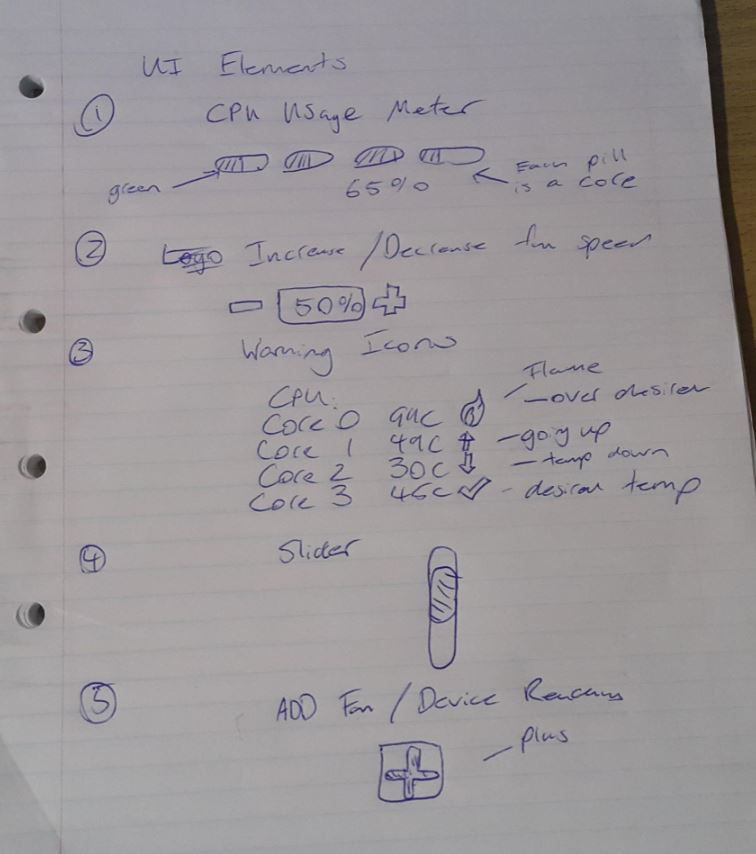 UI Elements
① CPU Usage Meter
green
65%
Each pill
is a core
② Logo Increase / Decrease fan speed
- 50% +
③ Warning Icons
Flame
CPU:
Core 0 94c - over desired
Core 1 49c - going up
Core 2 30c - temp down
Core 3 45c - desired temp
④ Slider
⑤ ADD Fan / Device
- plus